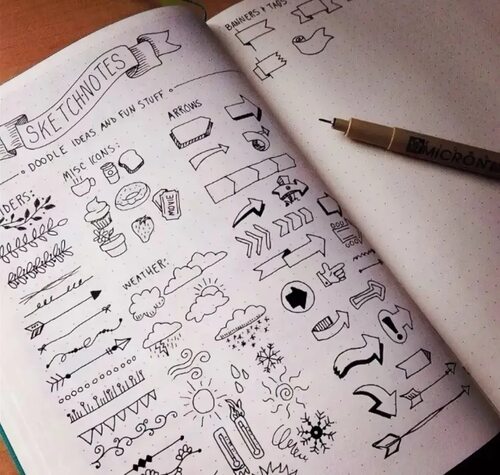 SKETCHNOTES
DOODLE IDEAS AND FUN STUFF
IDERS:
MISC ICONS:
MOVIE
WEATHER:
ARROWS
BANNERS & TAGS
MICRON